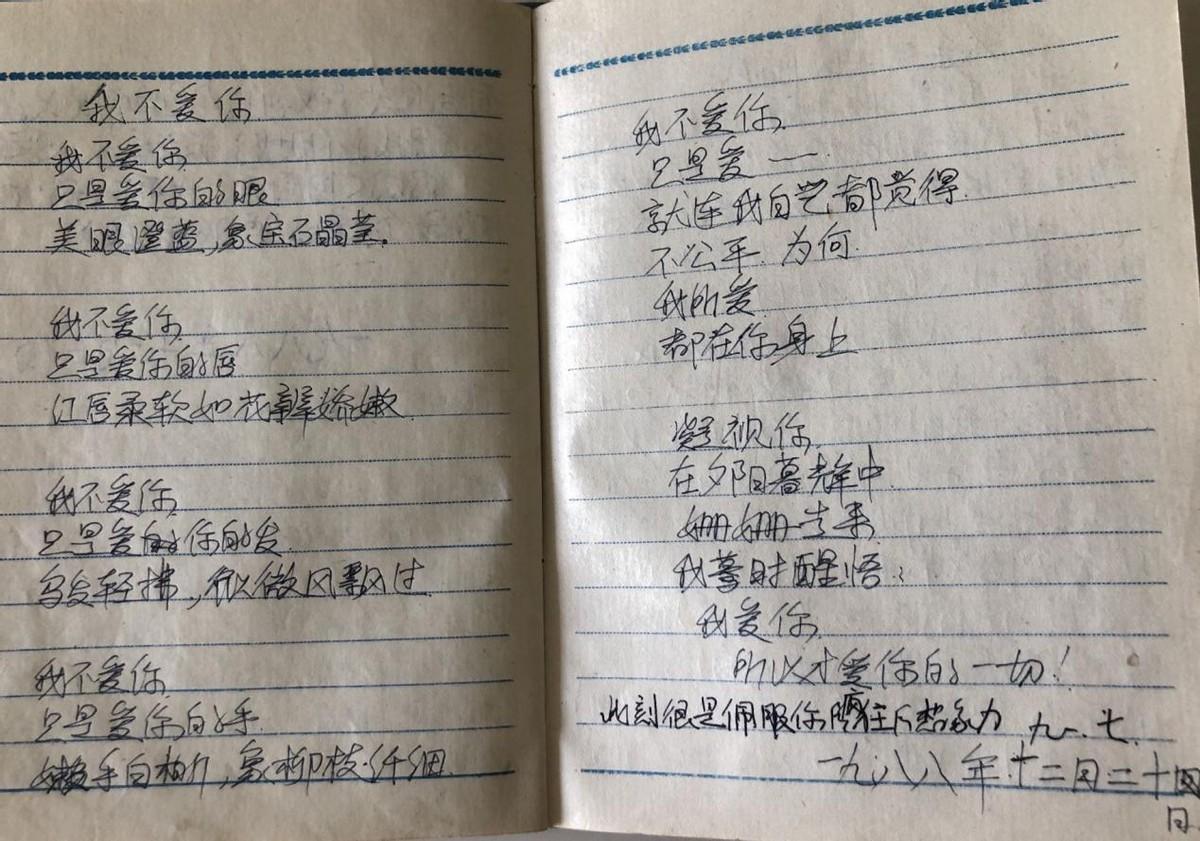 我不爱你
我不爱你
只是爱你的眼
美眼澄蓝,象宝石晶莹.
我不爱你
只是爱你的唇
红唇柔软如花瓣娇嫩
我不爱你
只是爱你的发
乌发轻拂,似微风飘过
我不爱你
只是爱你的手
嫩手白柏,象柳枝纤细
我不爱你
只是爱一
就连我自觉都觉得
不公平.为何
我所爱
都在你身上
凝视你
在夕阳暮辉中
姗姗告来
我蓦时醒悟:
我爱你
所以才爱你的一切!
此刻很是佩服你 象力 九一.七.
一九八八年十二月二十四
日.